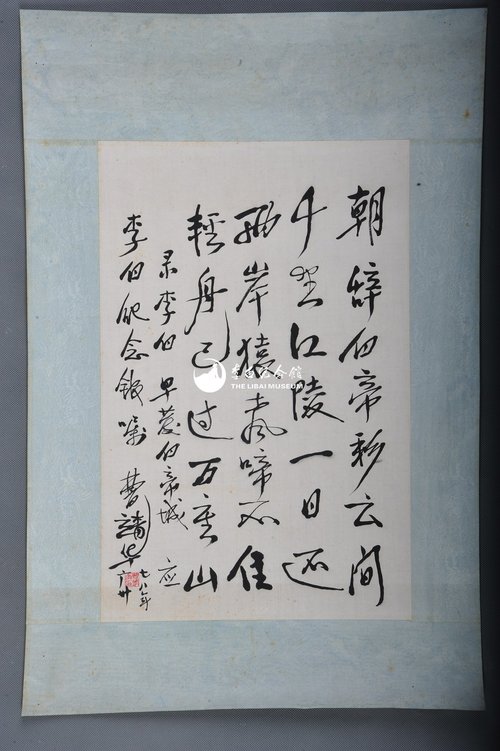 朝辞白帝彩云间
千里江陵一日还
两岸猿声啼不住
輕舟已过万重山
录李白早發白帝城 应
李白纪念館嘱 曹靖华
七八年
广州
李白纪念館
THE LIBAI MUSEUM